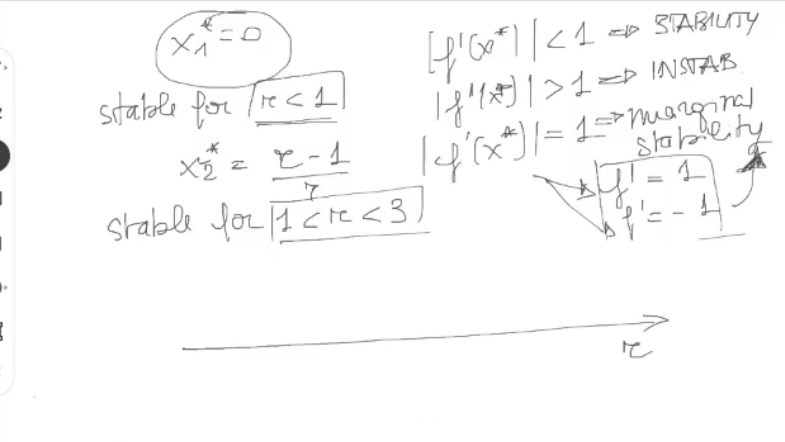 x₁* = 0
stable for r < 1
x₂* = r - 1 / r
stable for 1 < r < 3
|f'(x*)| < 1 => STABILITY
|f'(x*)| > 1 => INSTAB.
|f'(x*)| = 1 => marginal
stability
f' = 1
f' = - 1
r